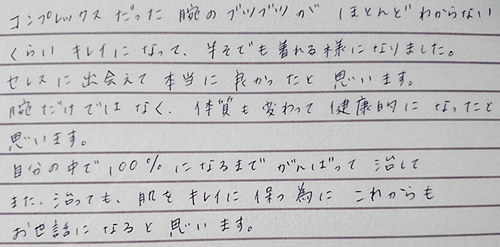 コンプレックスだった腕のブツブツがほとんどわからない
くらいキレイになって、半そでも着れる様になりました。
セレスに出会えて本当に良かったと思います。
腕だけではなく、体質も変わって健康的になったと
思います。
自分の中で100%になるまでがんばって治して
また、治っても、肌をキレイに保つ為にこれからも
お世話になると思います。